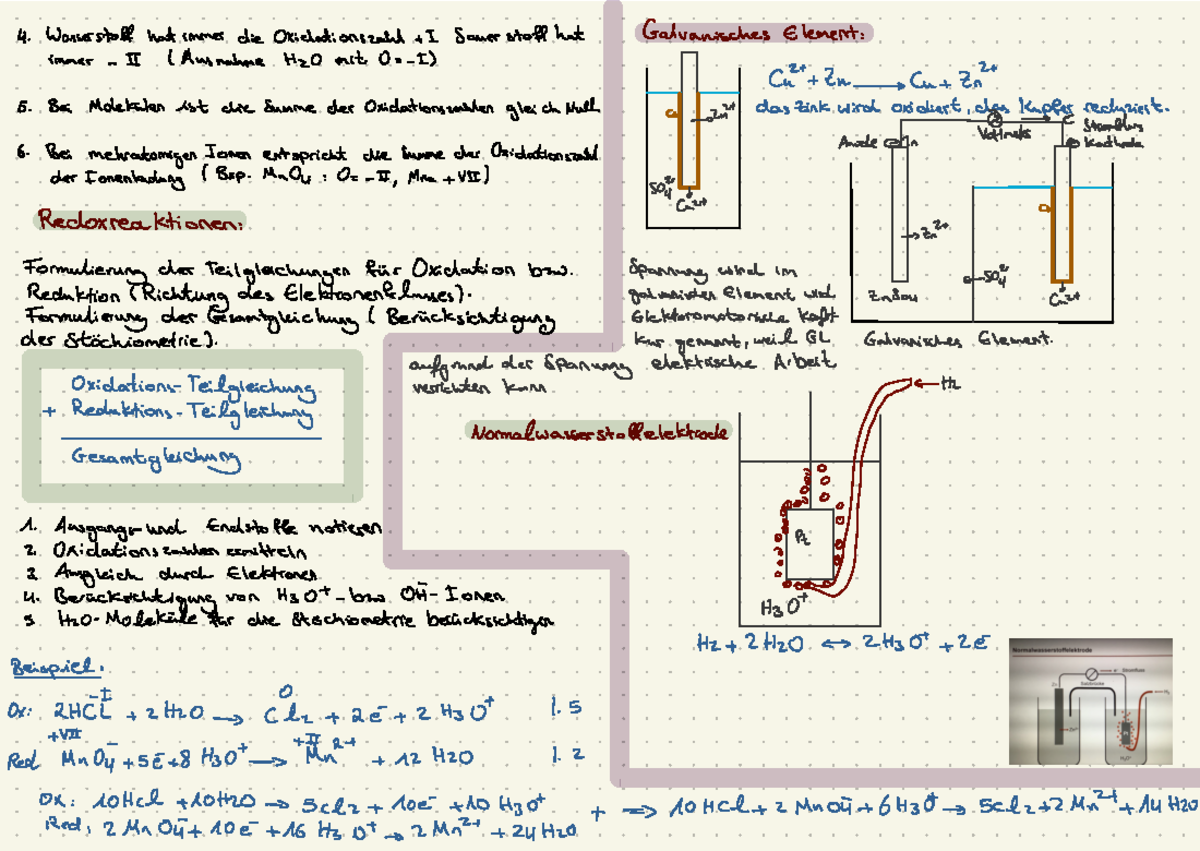 4. Wasserstoff hat immer die Oxidationszahl +I Sauerstoff hat
immer - II (Ausnahme H2O mit O=-I)
5. Bei Molekülen ist die Summe der Oxidationszahlen gleich Null
6. Bei mehratomigen Ionen entspricht die Summe der Oxidationszahl
der Ionenladung (Bsp. MnO4 : O=-II, Mn= +VII)
Redoxreaktionen:
Formulierung der Teilgleichungen für Oxidation bzw.
Reduktion (Richtung des Elektronenflusses).
Formulierung der Gesamtgleichung (Berücksichtigung
der Stöchiometrie).
Oxidations-Teilgleichung
+ Reduktions-Teilgleichung
Gesamtgleichung
1. Ausgangs- und Endstoffe notieren
2. Oxidationszahlen ermitteln
3. Ausgleich durch Elektronen
4. Berücksichtigung von H3O+ - bzw OH- - Ionen
5. H2O-Moleküle für die Stochiometrie berücksichtigen
Beispiel:
-I 0
Ox: 2HCl + 2H2O → Cl2 + 2e- + 2 H3O+ |. 5
+VII +II
Red MnO4- + 5e- + 8 H3O+ → Mn2+ + 12 H2O |. 2
Ox: 10HCl + 10H2O → 5Cl2 + 10e- + 10 H3O+
Red: 2 MnO4- + 10e- + 16 H3O+ → 2 Mn2+ + 24 H2O
+ => 10 HCl + 2 MnO4- + 6H3O+ → 5Cl2 + 2 Mn2+ + 14 H2O
Galvanisches Element:
Cu2+ + Zn → Cu + Zn2+
das Zink wird oxidiert, das Kupfer reduziert.
Zn2+
SO4 2-
Cu2+
Anode
Voltmeter
Stromfluss
Kathode
Zn2+
SO4 2-
ZnSO4
Cu2+
Galvanisches Element.
Spannung wird im
galvanischen Element wird
Elektoromotorische Kraft
kur genannt, weil GL
aufgrund der Spannung elektrische Arbeit
verrichten kann
Normalwasserstoffelektrode
H2
Pt
H3O+
H2 + 2H2O ↔ 2H3O+ + 2e-
Normalwasserstoffelektrode